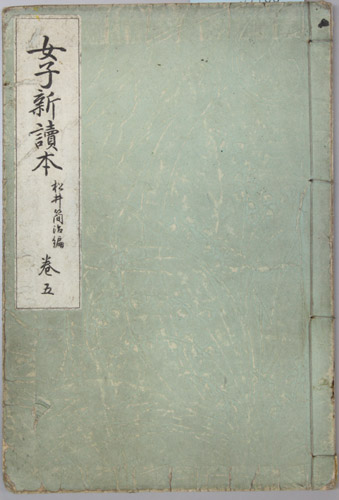 女子新讀本 松井簡治編 卷五